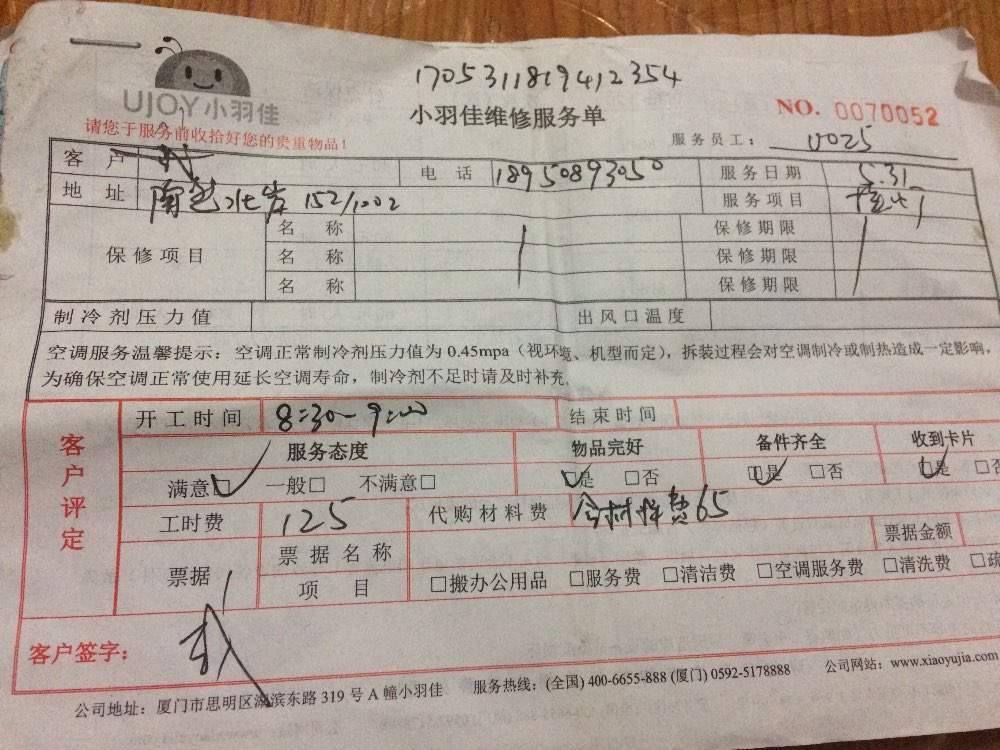 1705311819412354
UJOY小羽佳
小羽佳维修服务单
NO. 0070052
请您于服务前收拾好您的贵重物品！
服务员工： 0025
客 户 电 话 18950893050 服务日期 5.31
地 址 152/1002 服务项目
保修项目 名 称 保修期限
名 称 保修期限
名 称 保修期限
制冷剂压力值 出风口温度
空调服务温馨提示：空调正常制冷剂压力值为 0.45mpa（视环境、机型而定），拆装过程会对空调制冷或制热造成一定影响，
为确保空调正常使用延长空调寿命，制冷剂不足时请及时补充。
客户评定
开工时间 8:30~9:00 结束时间
服务态度 物品完好 备件齐全 收到卡片
满意□ 一般□ 不满意□ □是 □否 □是 □否 □是 □否
工时费 125 代购材料费 含材料费65
票据 票据名称 票据金额
项 目 □搬办公用品 □服务费 □清洁费 □空调服务费 □清洗费 □疏
客户签字：
公司地址：厦门市思明区湖滨东路 319 号 A 幢小羽佳 服务热线：(全国) 400-6655-888 (厦门) 0592-5178888 公司网站：www.xiaoyujia.com